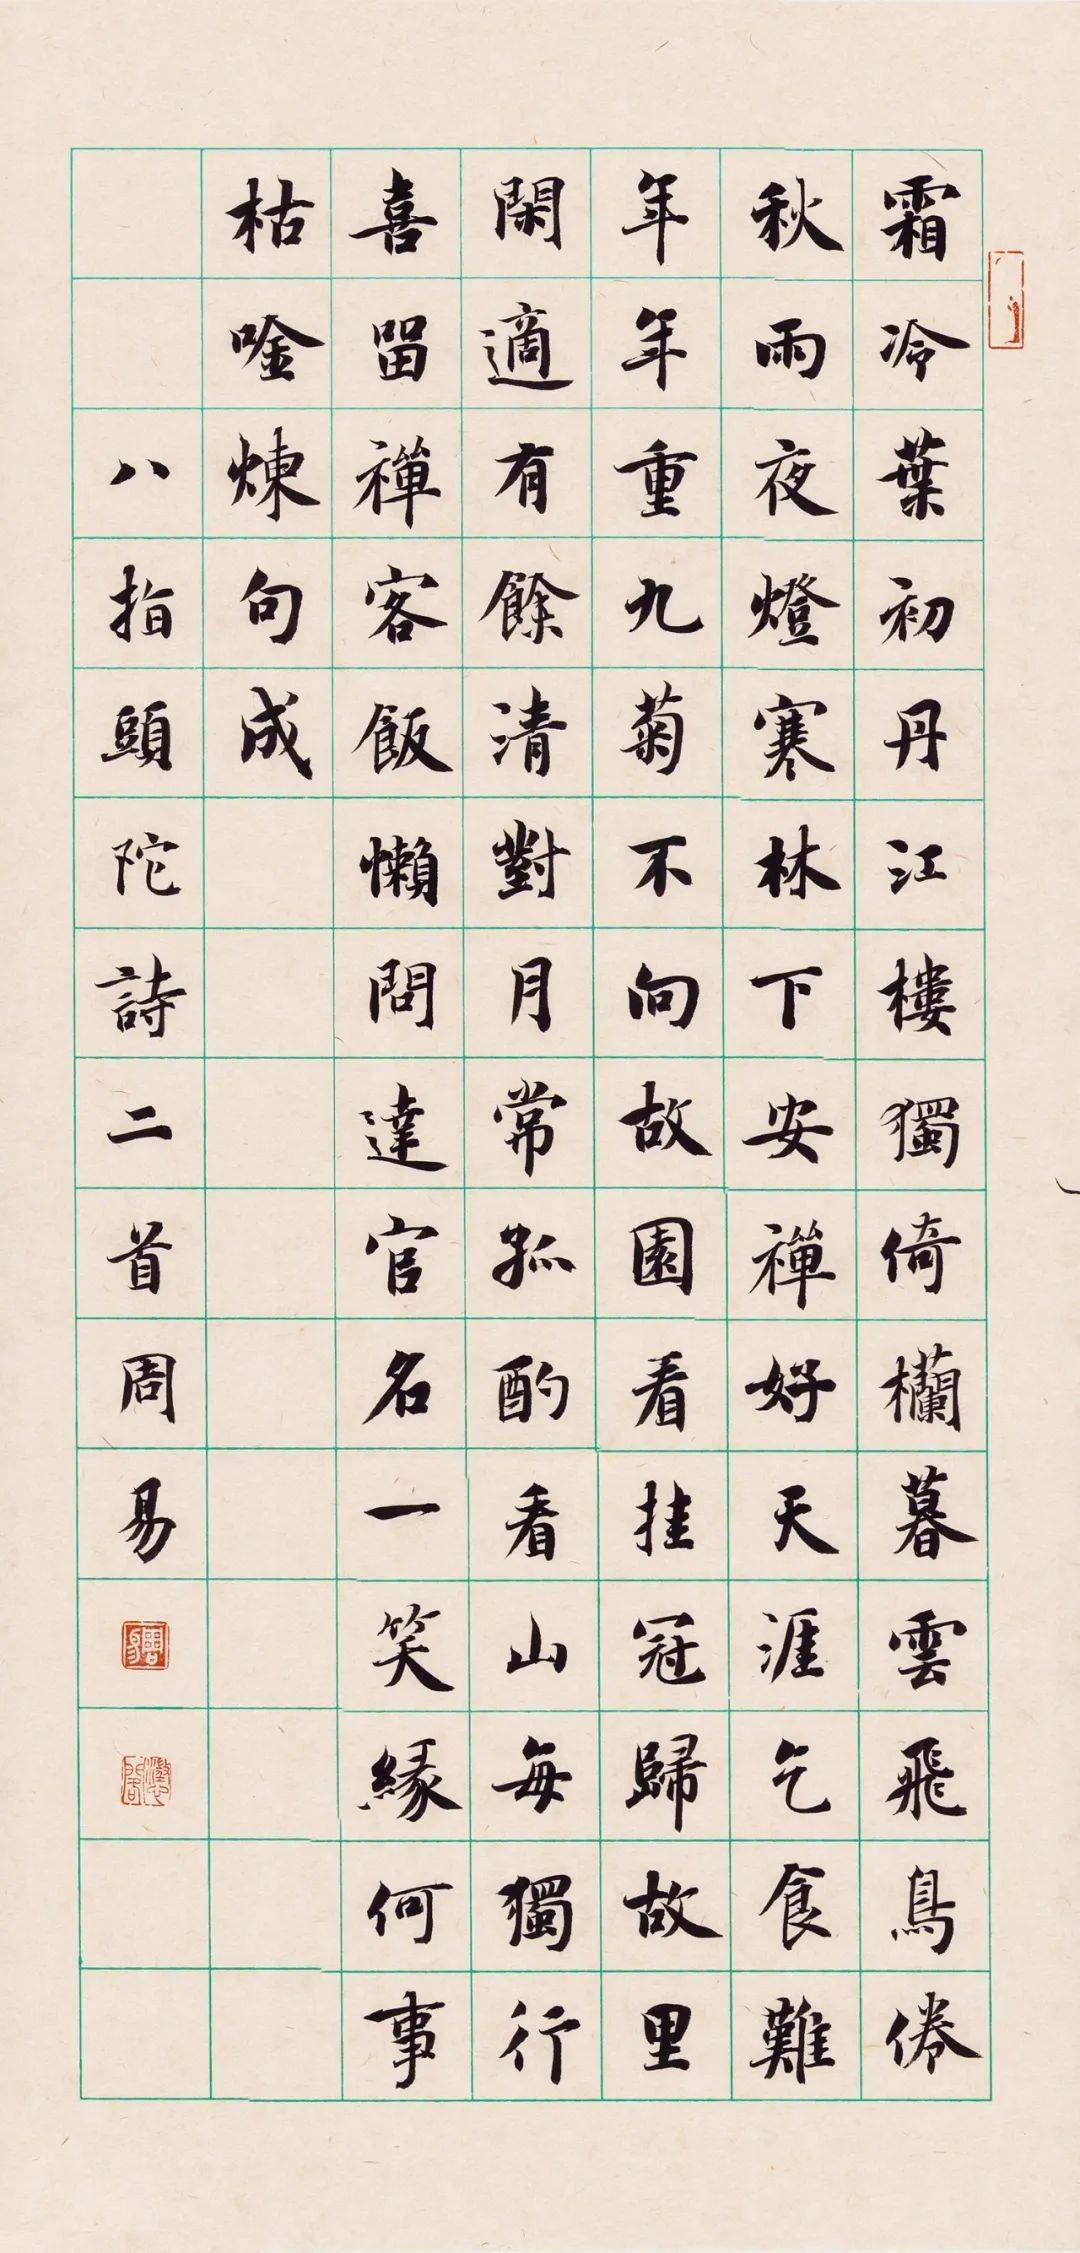 霜冷葉初丹江樓獨倚欄暮雲飛鳥倦
秋雨夜燈寒林下安禪好天涯乞食難
年年重九菊不向故園看挂冠歸故里
閑適有餘清對月常孤酌看山每獨行
喜留禪客飯懶問達官名一笑緣何事
枯唫煉句成
八指頭陀詩二首周易